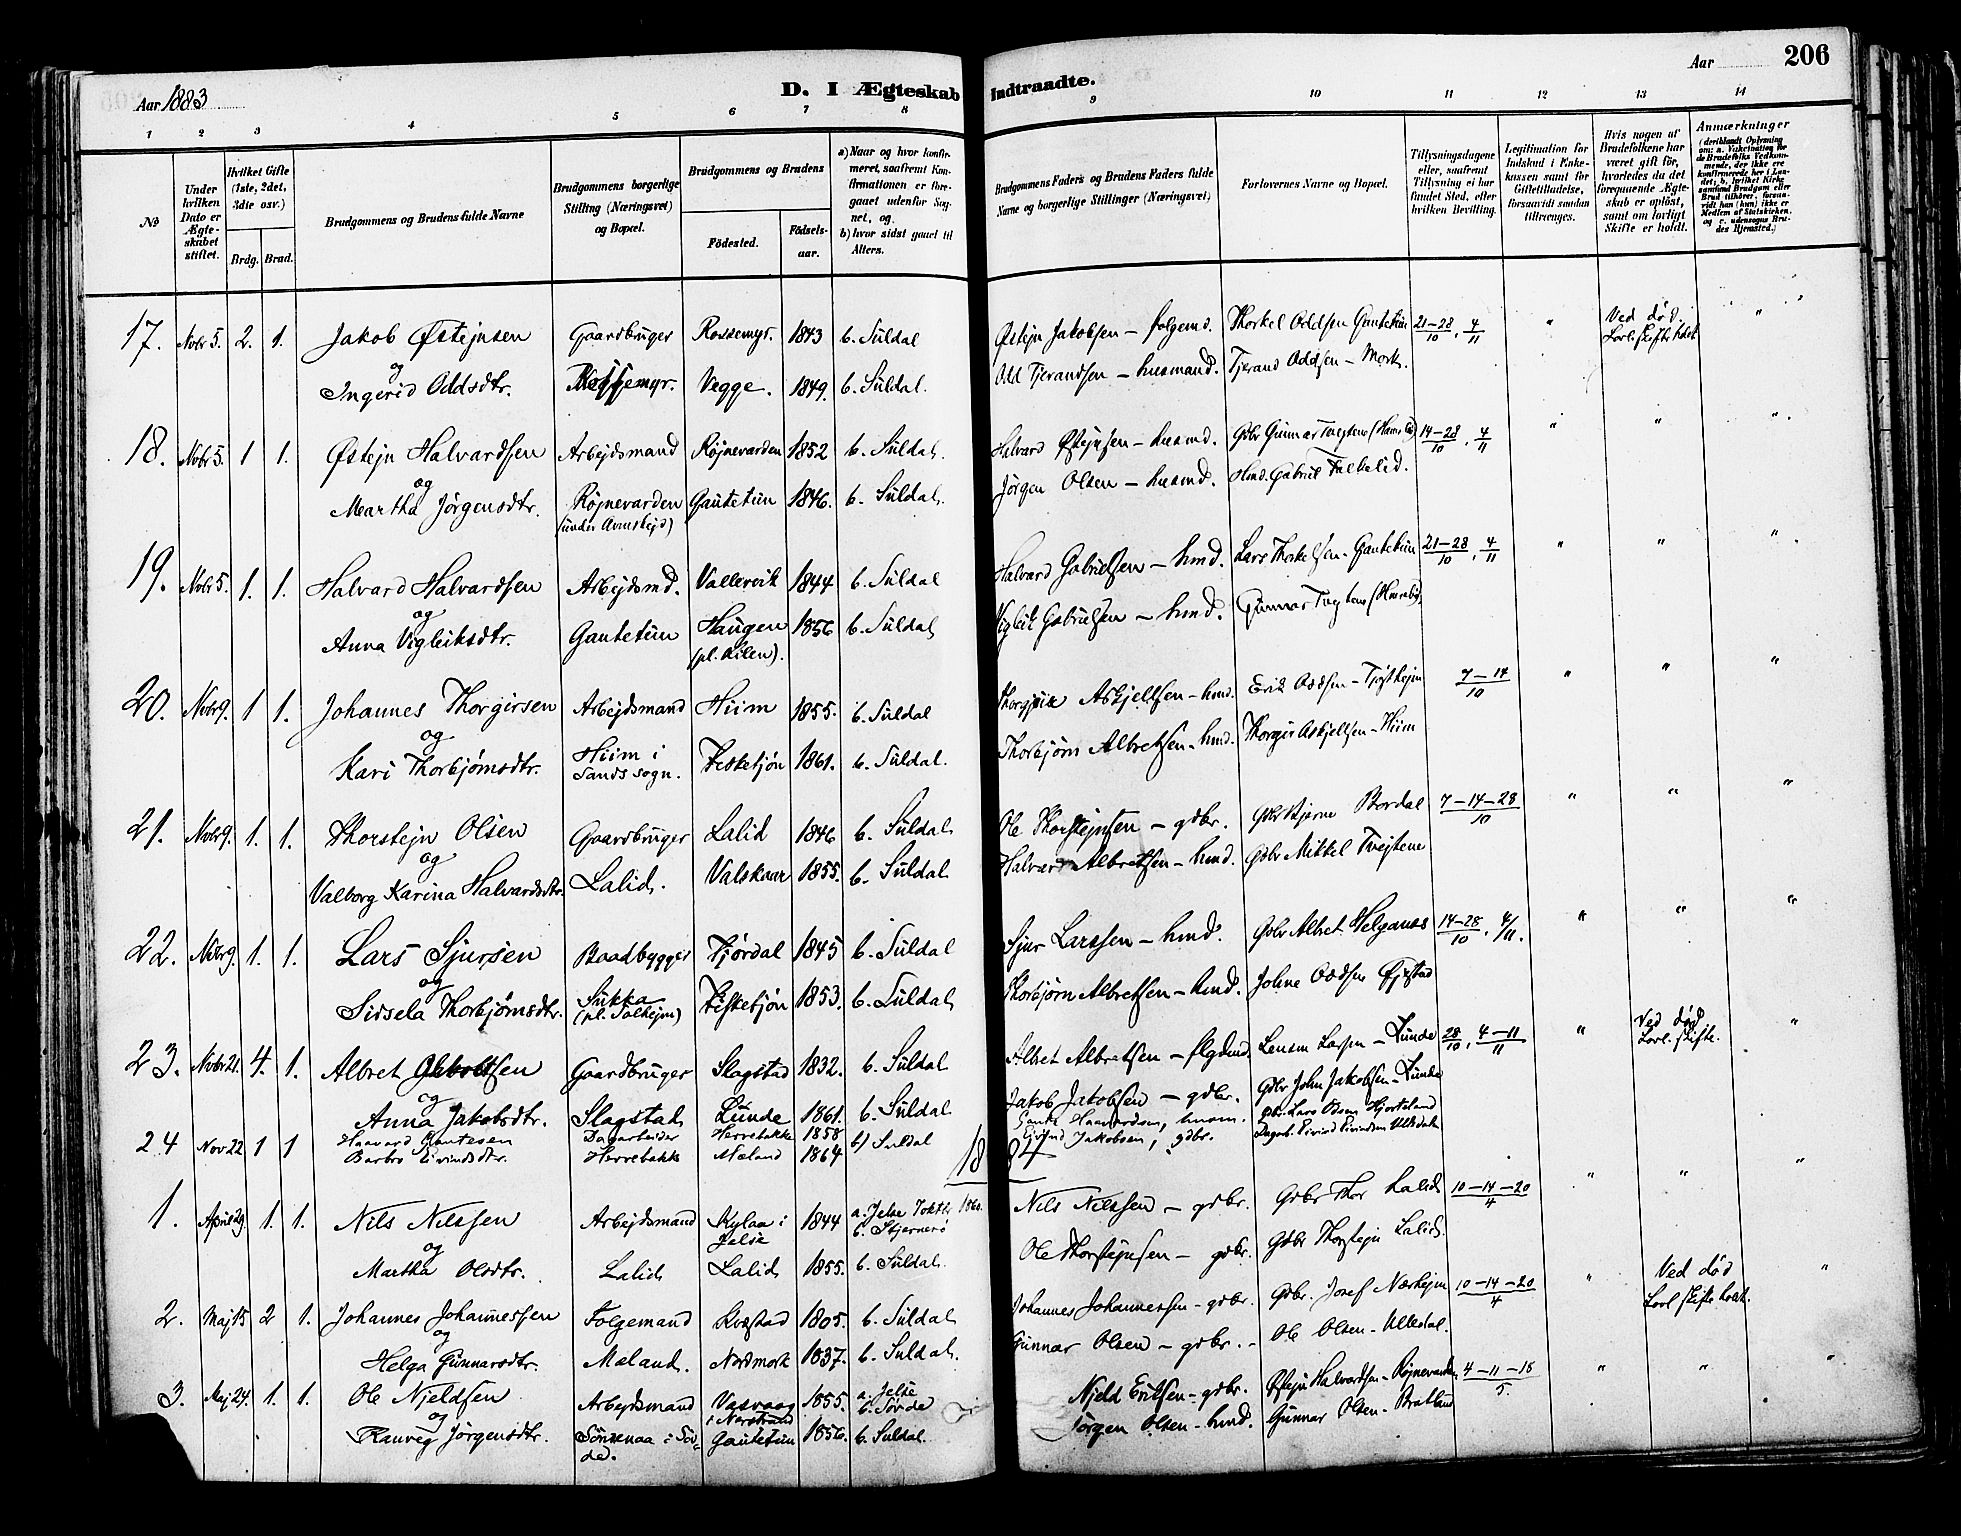 Aar 1883
D. I Ægteskab Indtraadte.
Aar
206
1 2 3 4 5 6 7 8 9 10 11 12 13 14
№
Under hvilken Dato er Ægteskabet stiftet.
Hvilket Gifte (1ste, 2det, 3die osv.)
Brdg. Brud.
Brudgommens og Brudens fulde Navne
Brudgommens borgerlige Stilling (Næringsvei) og Bopæl.
Brudgommens og Brudens
Födested.
Födsels-aar.
a) Naar og hvor konfirmeret, saafremt Konfirmationen er foregaaet udenfor Sognet, og
b) hvor sidst gaaet til Alters.
Brudgommens Faders og Brudens Faders fulde Navne og borgerlige Stillinger (Næringsvei)
Forlovernes Navne og Bopæl.
Tillysningsdagene eller, saafremt Tillysning ei har fundet Sted, efter hvilken Bevilling.
Legitimation for Indskud i Enkekassen samt for Giftetilladelse, forsaavidt saadan tiltrænges.
Hvis nogen af Brudefolkene har været gift för, hvorledes da det foregaaende Ægteskab er oplöst, samt om lovligt Skifte er holdt.
Anmærkninger
17. Novbr 5. 2. 1. Jakob Østejnsen Gaardbruger Rossemyr. 1843 b. Suldal Østejn Jakobsen – folgemd. Thorkel Oddsen Gautetun 21–28/10, 4/11 " Ved død. Lovl. skifte holdt "
og
Ingerid Oddsdtr. Rossemyr. Vegge. 1849. b. Suldal. Odd Tjerandsen – husmand. Tjerand Oddsen – Mork.
18. Novbr 5. 1 1. Østejn Halvardsen Arbejdsmand Røjnevarden 1852 b. Suldal. Halvard Østejnsen – husmd. Gdbr Gunnar Tvejtene 14–28/10, 4/11 " " "
og
Martha Jørgensdtr. Røjnevarden Gautetun 1846. b. Suldal. Jørgen Olsen – husmd. Hmd. Gabriel Falkelid.
19. Novbr 5. 1. 1. Halvard Halvardsen Arbejdsmd. Vallervik 1844 b. Suldal Halvard Gabrielsen – hmd. Lars Thorkelsen – Gautetun 21–28/10, 4/11 " " "
og
Anna Vigleiksdtr. Gautetun Haugen 1856 b. Suldal Vigleik Gabrielsen – hmd.
(pl. Kilen).
20. Novbr 9. 1 1. Johannes Thorgirsen Arbejdsmand Hiim 1855. b. Suldal Askjellsen – hmd. Erik Oddsen – 7–14/10 " " "
og
Kari Thorbjørnsdtr. Hiim i Sands sogn. Fisketjøn 1861. b. Suldal. Thorbjørn Albretsen – hmd. Thorgir Askjellsen – Hiim
21. Novbr 9. 1. 1. Thorstejn Olsen Gaardbruger Lalid 1846 b. Suldal Ole Thorstejnsen – gdbr. Gdbr Bjarne Bordal 7–14–28/10 " " "
og
Valborg Karina Halvardsdtr. Lalid. Valskaar 1855. b. Suldal Halvard Albretsen – hmd. Gdbr Mikkel Tvejtene
22. Novbr 9. 1. 1. Lars Sjursen Baadbygger Fjørdal 1845 b. Suldal Sjur Larssen – hmd. Gdbr Albret Helganes 14–28/10, 4/11. " " "
og
Sidsela Thorbjørnsdtr. Sukka Fisketjøn 1853. b. Suldal Thorbjørn Albretsen – hmd. Johne Oddsen
23. Novbr 21. 4. 1. Albret Albretsen Gaardbruger Slagstad 1832. b. Suldal Albret Albretsen – flgdmd. Larsen – Lunde 28/10, 4–11/11 " Ved død Lovl. skifte. "
og
Anna Jakobsdtr. Slagstad Lunde 1861. b. Suldal Jakob Jakobsen – gdbr. Gdbr John Jakobsen – Lunde
24 Nov 22 1 1 Haavard Gautesen Dagarbeider Herrebakke 1858 b) Suldal Gaute Haavardsen, husm. Gdbr. Lars Hjorteland
Barbro Eivindsdtr. Herrebakke Mæland 1864 Eivind Jakobsen, gdbr. Eivind Eivindsen
1884
1. April 29 1. 1. Nils Nilssen Arbejdsmand Kylaa i Jelse 1844 a. Jelse 1860. b. Stjernerø Nils Nilssen – gdbr. Gdbr Thor Lalid 10–14–20/4 " " "
og
Martha Olsdtr. Lalid Lalid 1855. b. Suldal. Ole Thorstejnsen – gdbr. Gdbr Thorstejn Lalid.
2. Maj 15 2 1. Johannes Johannessen Folgemand Kvæstad 1805. b. Suldal Johannes Johannessen – gdbr. Gdbr. Josef Nærhejm 10–14–20/4 " Ved død Lovl skifte holdt. "
og
Helga Gunnarsdtr. Mæland. Nordmork 1837. b. Suldal. Gunnar Olsen – gdbr. – Ole Olsen – Ulledal.
3. Maj 24. 1. 1. Ole Njeldsen Arbejdsmand Vasvaag i Nærstrand 1855. a. Jelse b. Søvde Njeld Eriksen – gdbr. Østejn Halvardsen – Røjnevarden 4–11–18/5. " " "
og
Ranveig Jørgensdtr. i Søvde. Gautetun 1856. b. Suldal. Jørgen Olsen – hmd. Gunnar Olsen – Bratland